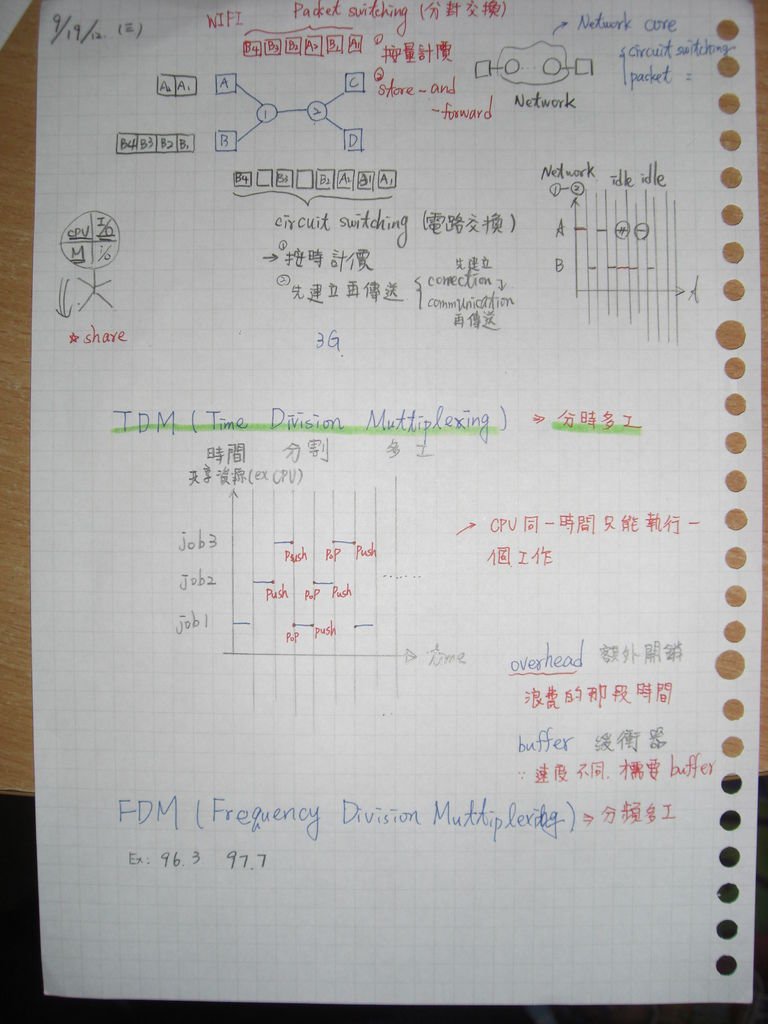 9/19/12. (三)
WIFI
Packet switching (分封交換)
B4 B3 B2 A2 B1 A1
① 按量計價
② store-and-forward
Network core
circuit switching
packet =
Network
A2 A1
A
C
B4 B3 B2 B1
1
2
B
D
B4 B3 B2 A2 B1 A1
circuit switching (電路交換)
→ ① 按時計價
② 先建立再傳送
先建立
connection
communication
再傳送
3G
Network
①-②
idle idle
A
B
t
CPU I/O
M I/O
☆ share
TDM (Time Division Multtiplexing) ⇒ 分時多工
時間 分割 多工
共享資源(ex CPU)
job3
push pop push
job2
push pop push
......
job1
pop push
time
→ CPU同一時間只能執行一
個工作
overhead 額外開銷
浪費的那段時間
buffer 緩衝器
∵ 速度不同,才需要buffer
FDM (Frequency Division Multtiplexing) ⇒ 分頻多工
Ex: 96.3 97.7